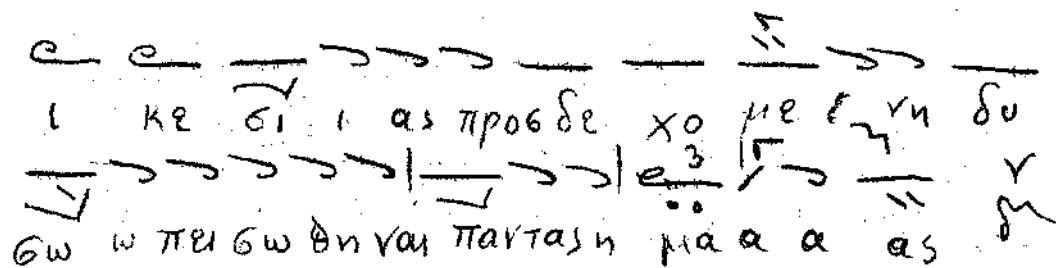 ι κε σι ι ας προσδε χο με ε νη δυ
σω ω πει σω θη ναι παντας η μα α α ας